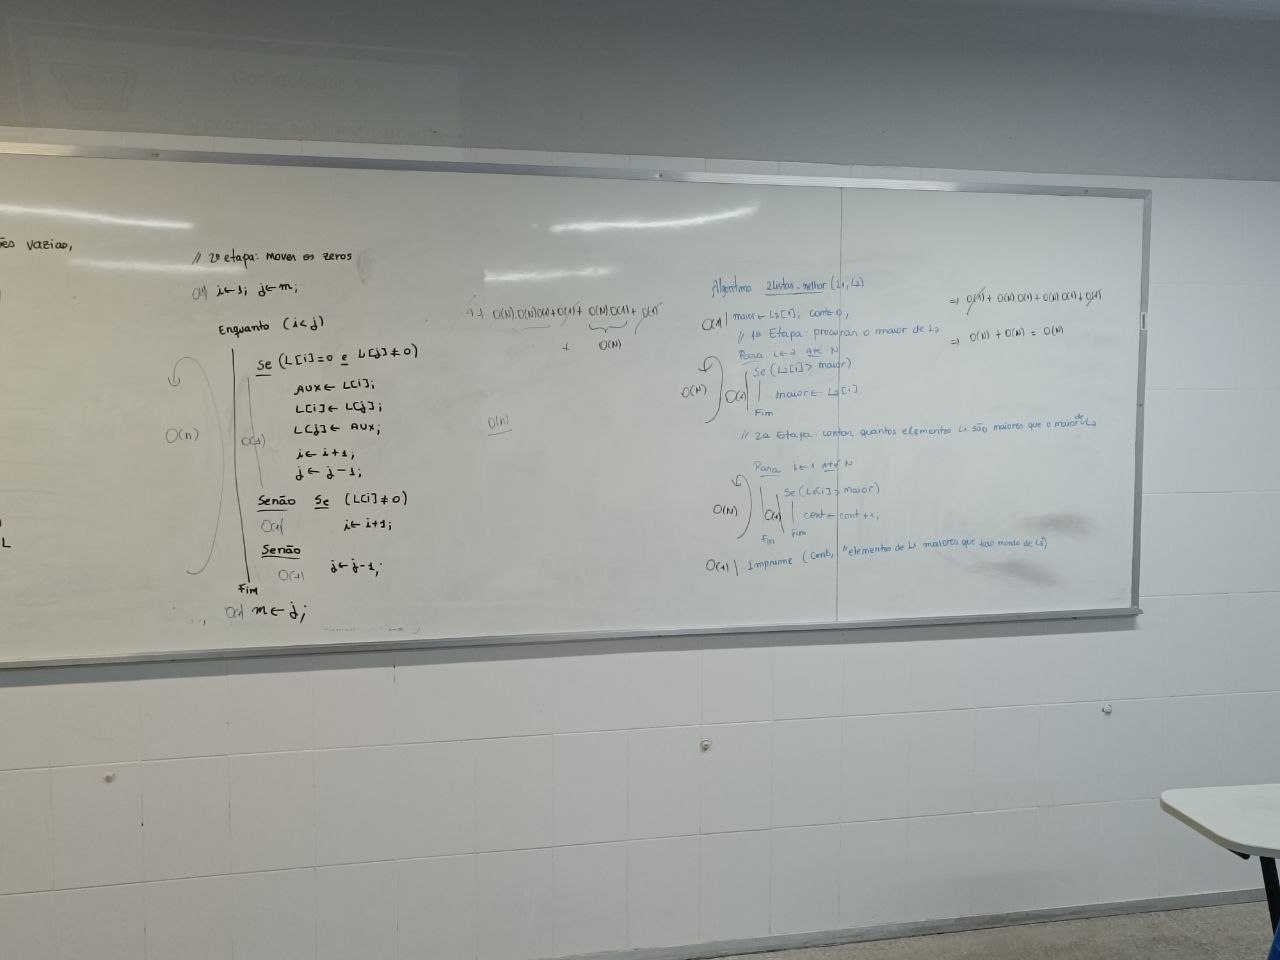 vazias,
L
// 2ª etapa: mover os zeros
O(1) i←1; j←m;
Enquanto (i<j)
Se (L[i]=0 e L[j]≠0)
AUX ← L[i];
L[i] ← L[j];
L[j] ← AUX;
i ← i+1;
j ← j-1;
O(n)
O(1)
Senão Se (L[i]≠0)
O(1) i←i+1;
Senão
O(1) j←j-1;
Fim
O(1) m←j;
O(N)
O(n)
Algoritmo 2listas-melhor (L1, L2)
O(1) | maior ← L2[1], cont←0,
// 1ª Etapa: procurar o maior de L2
Para i←2 Até N
O(N) O(1) Se (L2[i] > maior)
maior ← L2[i]
Fim
// 2ª Etapa: contar quantos elementos L1 são maiores que o maior de L2
Para i←1 Até N
O(N) O(1) Se (L1[i] > maior)
cont ← cont+1;
Fim Fim
O(1) | Imprime (Cont, "elementos de L1 maiores que todo mundo de L2")
⇒ O(1) + O(N).O(1) + O(N).O(1) + O(1)
⇒ O(N) + O(N) = O(N)